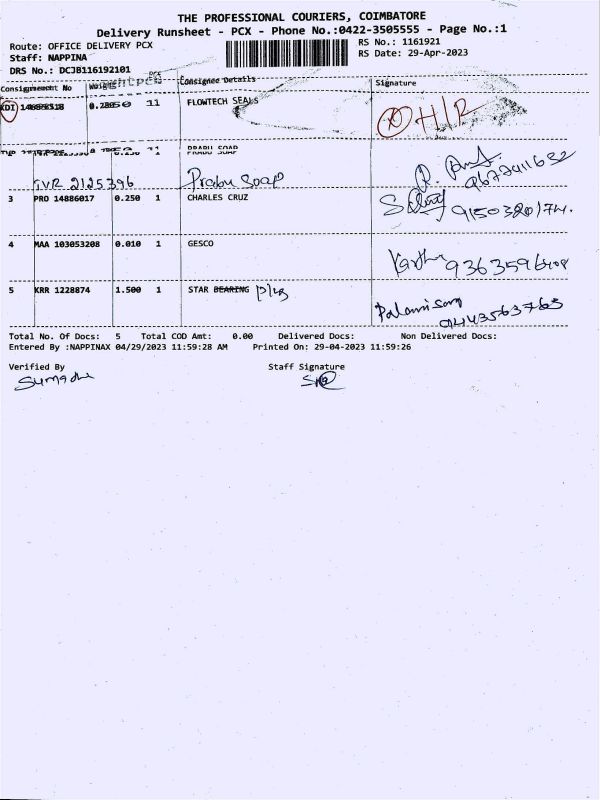 THE PROFESSIONAL COURIERS, COIMBATORE
Delivery Runsheet - PCX - Phone No.:0422-3505555 - Page No.:1
Route: OFFICE DELIVERY PCX
RS No.: 1161921
Staff: NAPPINA
RS Date: 29-Apr-2023
DRS No.: DCJB116192101
Consignment No Weight PCS Consignee Details Signature
KDI 11 FLOWTECH SEALS
H/R
11 PRABU SOAP
TVR 2125396 Prabu Soap
9677911632
3 PRO 14886017 0.250 1 CHARLES CRUZ
4 MAA 103053208 0.010 1 GESCO
5 KRR 1228874 1.500 1 STAR BEARING
9443563763
Total No. Of Docs: 5 Total COD Amt: 0.00 Delivered Docs: Non Delivered Docs:
Entered By :NAPPINAX 04/29/2023 11:59:28 AM Printed On: 29-04-2023 11:59:26
Verified By Staff Signature